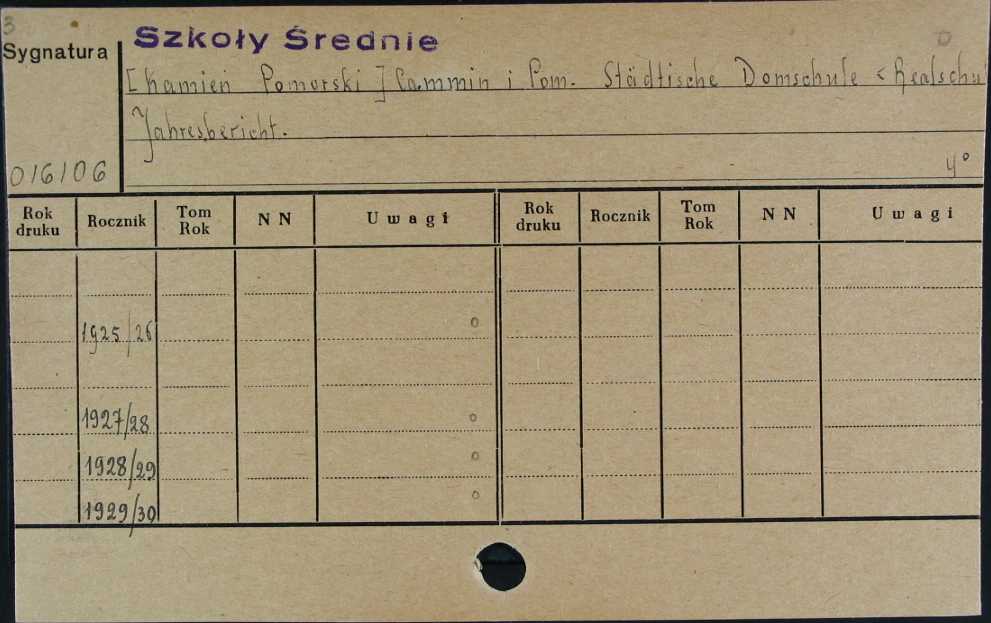 3
Szkoły Średnie
Sygnatura
[Kamień Pomorski] Cammin i Pom. Städtische Domschule < Realschu
Jahresbericht.
016106
4°
Rok druku Rocznik Tom Rok N N Uwagi Rok druku Rocznik Tom Rok N N Uwagi
1925/26 o
1927/28 o
1928/29 o
1929/30 o